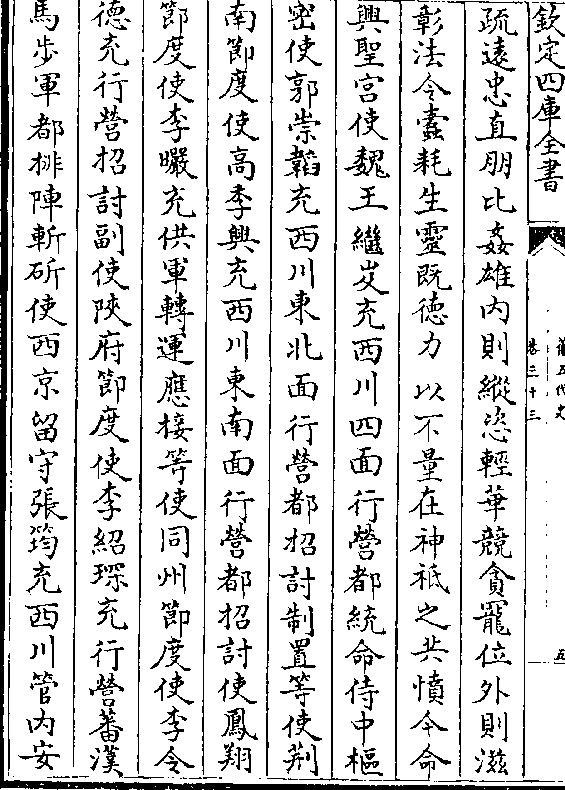 欽定四庫全書
舊五代史
卷三十三
五
疏遠忠直朋比姦雄内則縱恣輕華競貪寵位外則滋
彰法令蠧耗生靈既德力以不量在神祇之共憤今命
興聖宫使魏王繼岌充西川四面行營都統命侍中樞
密使郭崇韜充西川東北面行營都招討制置等使荆
南節度使高季興充西川東南面行營都招討使鳳翔
節度使李曮充供軍轉運應接等使同州節度使李令
德充行營招討副使陝府節度使李紹琛充行營蕃漢
馬步軍都排陣斬斫使西京留守張筠充西川管内安